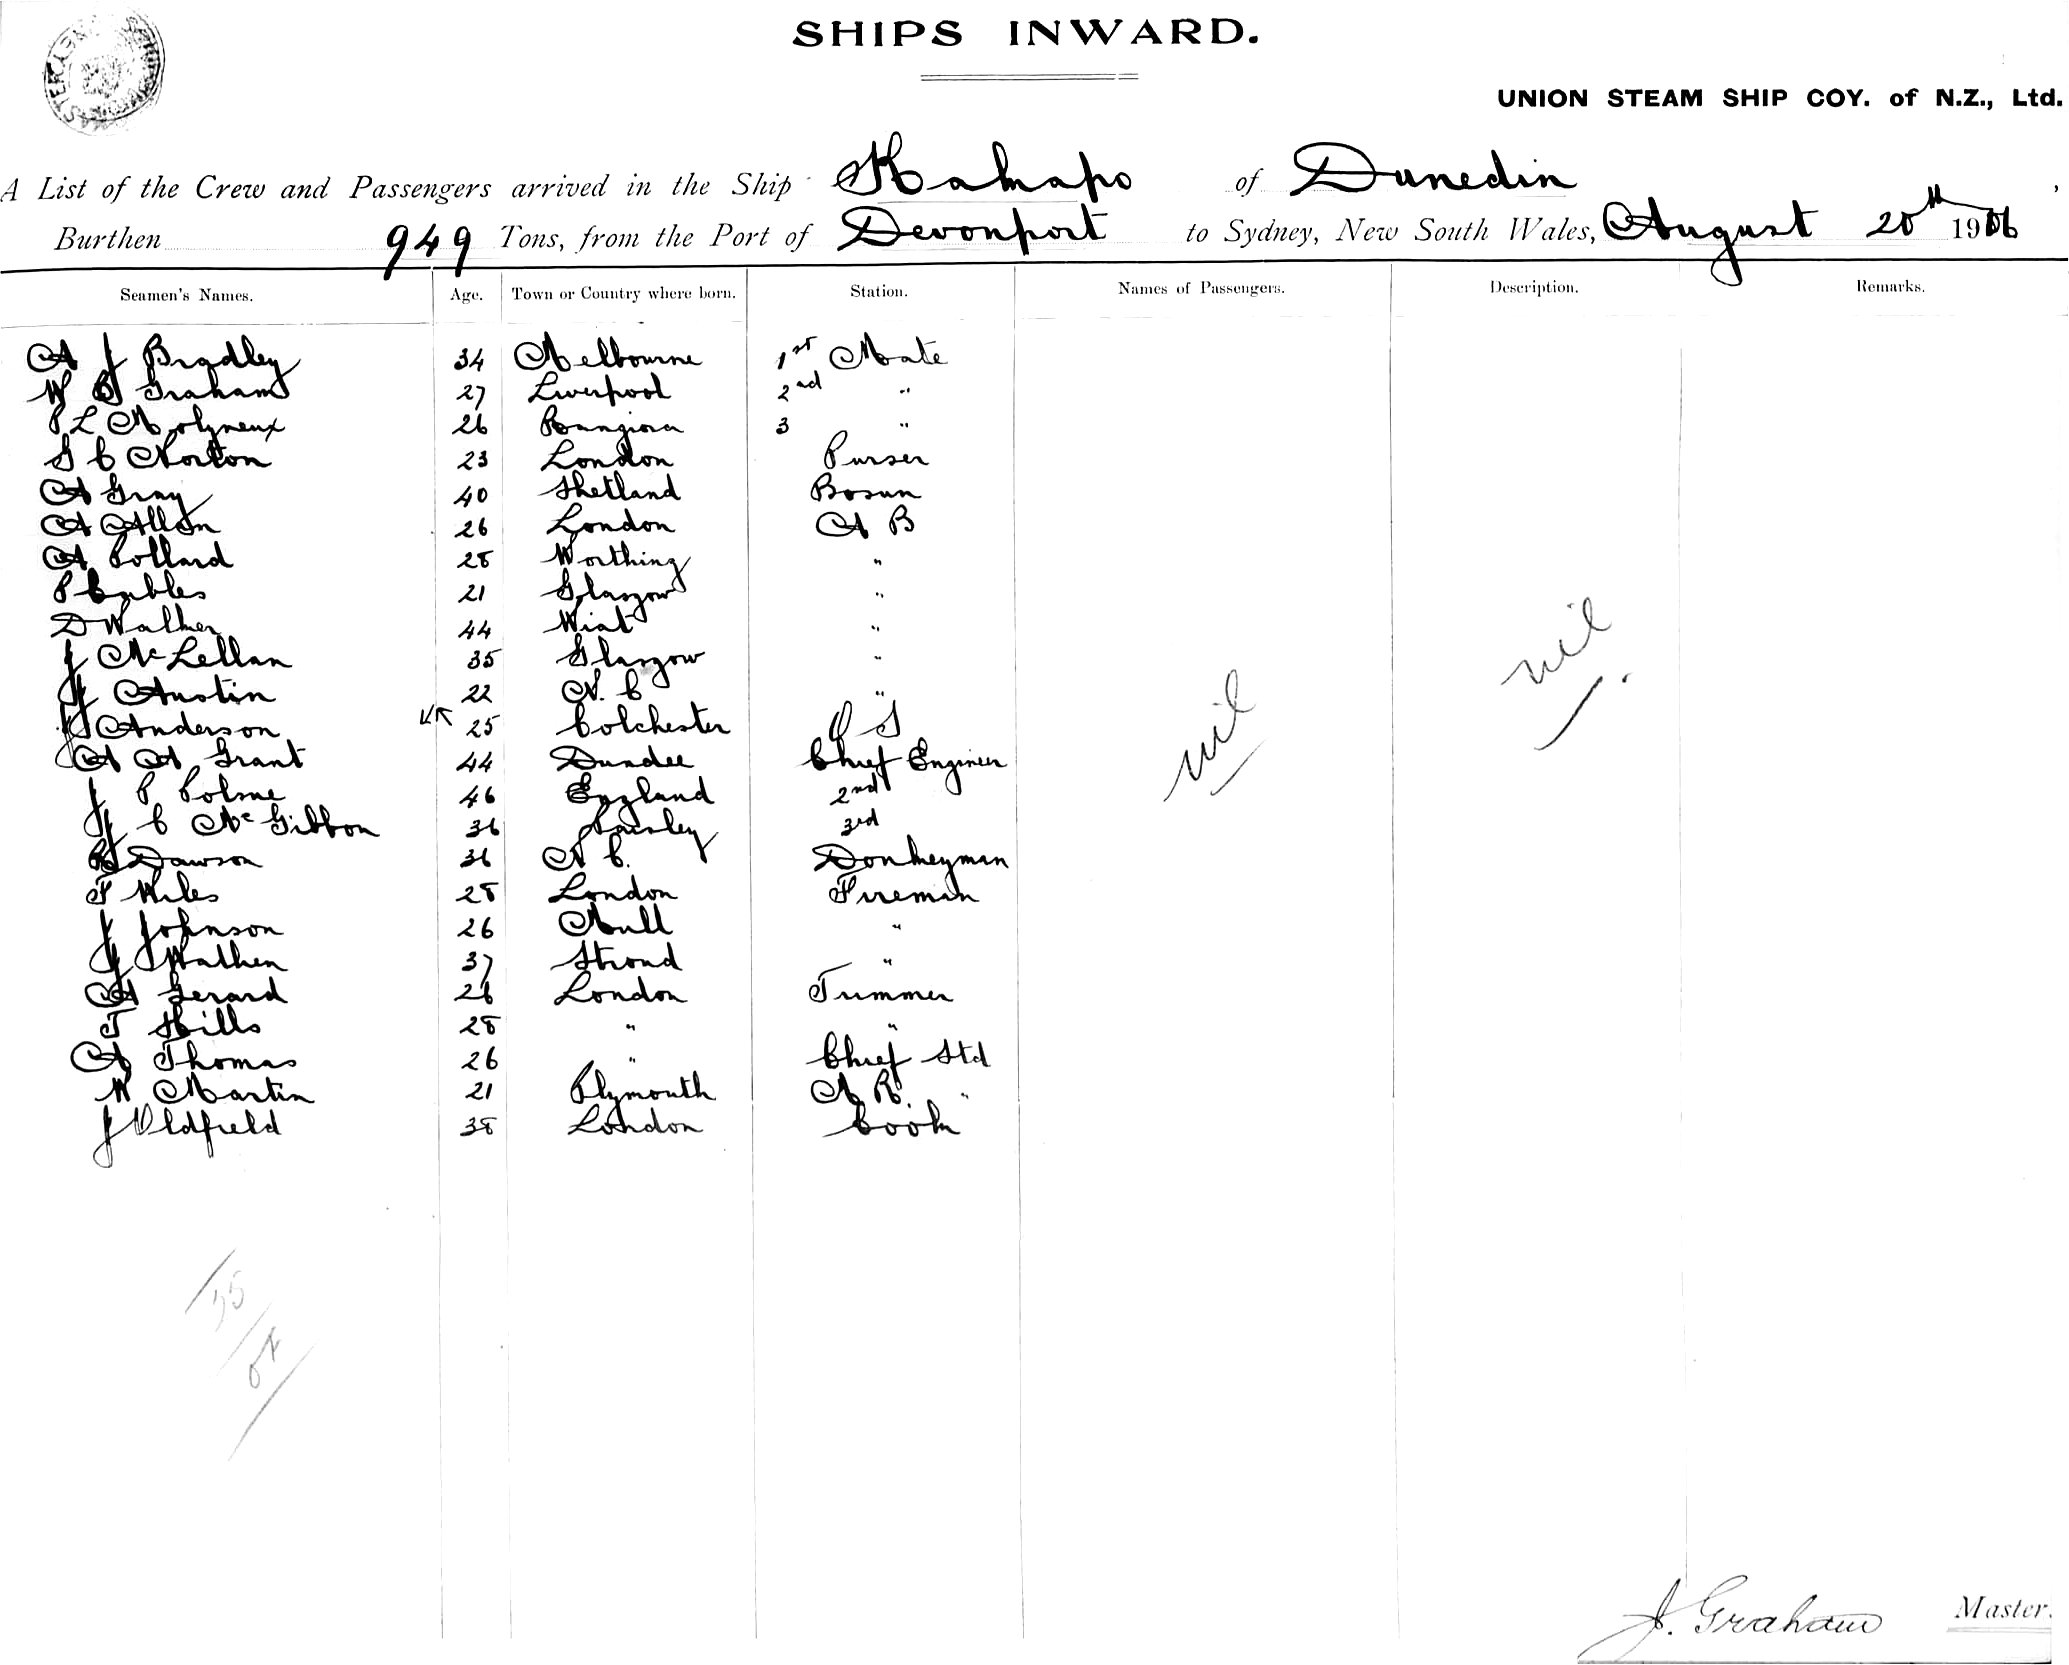 SHIPS INWARD.
UNION STEAM SHIP COY. of N.Z., Ltd.
A List of the Crew and Passengers arrived in the Ship Kakapo of Dunedin,
Burthen 949 Tons, from the Port of Devonport to Sydney, New South Wales, August 20th 1906
Seamen's Names. Age. Town or Country where born. Station. Names of Passengers. Description. Remarks.
A J Bradley 34 Melbourne 1st Mate
W B Graham 27 Liverpool 2nd "
P L Molyneux 26 Rangiora 3 "
G C Norton 23 London Purser
A Gray 40 Shetland Bosun
A Allan 26 London A B
A Collard 28 Worthing "
P Cables 21 Glasgow "
D Walker 44 "
J McLellan 35 Glasgow "
J Austin 22 N. C "
J Anderson 25 Colchester O S
A A Grant 44 Dundee Chief Engineer
J P 46 England 2nd
J C McGibbon 36 Paisley 3rd
R Dawson 36 N C. Donkeyman
F Wiles 28 London Fireman
J Johnson 26 Hull "
J Wathen 37 Stroud "
A Gerard 26 London Trimmer
T Hills 28 " "
A Thomas 26 " Chief Std
W Martin 21 Plymouth A R. "
J Oldfield 38 London Cook
nil
nil
J. Graham Master.